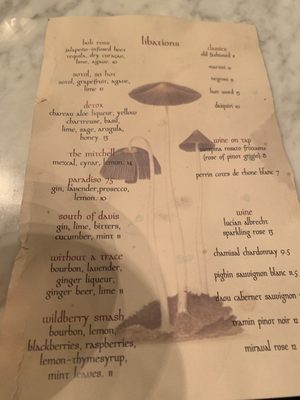 libations
bob ross
jalapeño-infused beet
tequila, dry curaçao,
lime, agave. 10
sotol, so hot
sotol, grapefruit, agave,
lime 11
detox
chareau aloe liqueur, yellow
chartreuse, basil,
lime, sage, arugula,
honey. 13
the mitchell
mezcal, cynar, lemon. 14
paradise 75
gin, lavender, prosecco,
lemon. 10
south of davis
gin, lime, bitters,
cucumber, mint 11
without a trace
bourbon, lavender,
ginger liqueur,
ginger beer, lime 11
wildberry smash
bourbon, lemon,
blackberries, raspberries,
lemon-thymesyrup,
mint leaves. 11
classics
old fashioned
negroni
daiquiri 10
wine on tap
rosato frizzante
(rose of pinot grigio) 8
perrin cotes de rhone blanc 7
wine
lucian albrecht
sparkling rose 13
chamisal chardonnay 9.5
pighin sauvignon blanc 11.5
daou cabernet sauvignon
tramin pinot noir 12
miraval rose 12